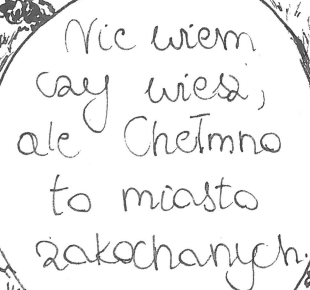 Nic wiem
czy wiesz,
ale Chełmno
to miasto
zakochanych.